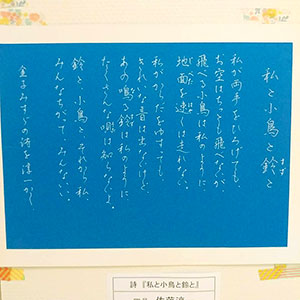 私と小鳥と鈴と
すず
私が両手をひろげても、
お空はちっとも飛べないが
飛べる小鳥は私のように、
地面を速くは走れない。
私がからだをゆすっても、
きれいな音は出ないけど、
あの鳴る鈴は私のように
たくさんな唄は知らないよ。
鈴と、小鳥と、それから私、
みんなちがって、みんないい。
金子みすゞの詩を
詩 『私と小鳥と鈴と』